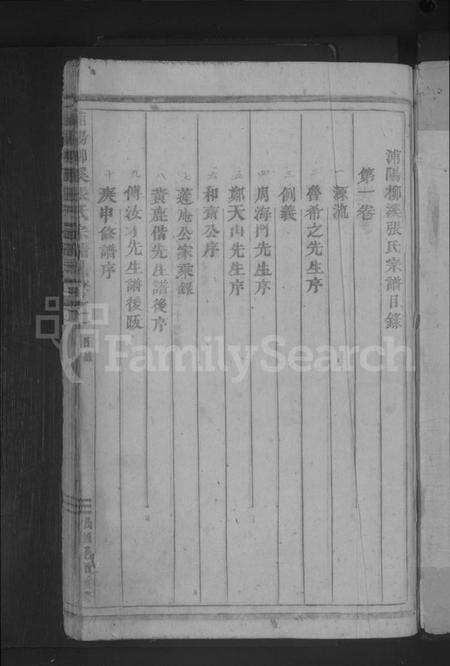 浦陽柳溪張氏宗譜目錄
第一卷
一 源流
二 魯希之先生序
三 例義
四 周海門先生序
五 鄭天山先生序
六 和齋公序
七 蓮庵公家乘錄
八 黃鹿偕先生譜後序
九 傅汝才先生譜後跋
十 庚申修譜序
FamilySearch